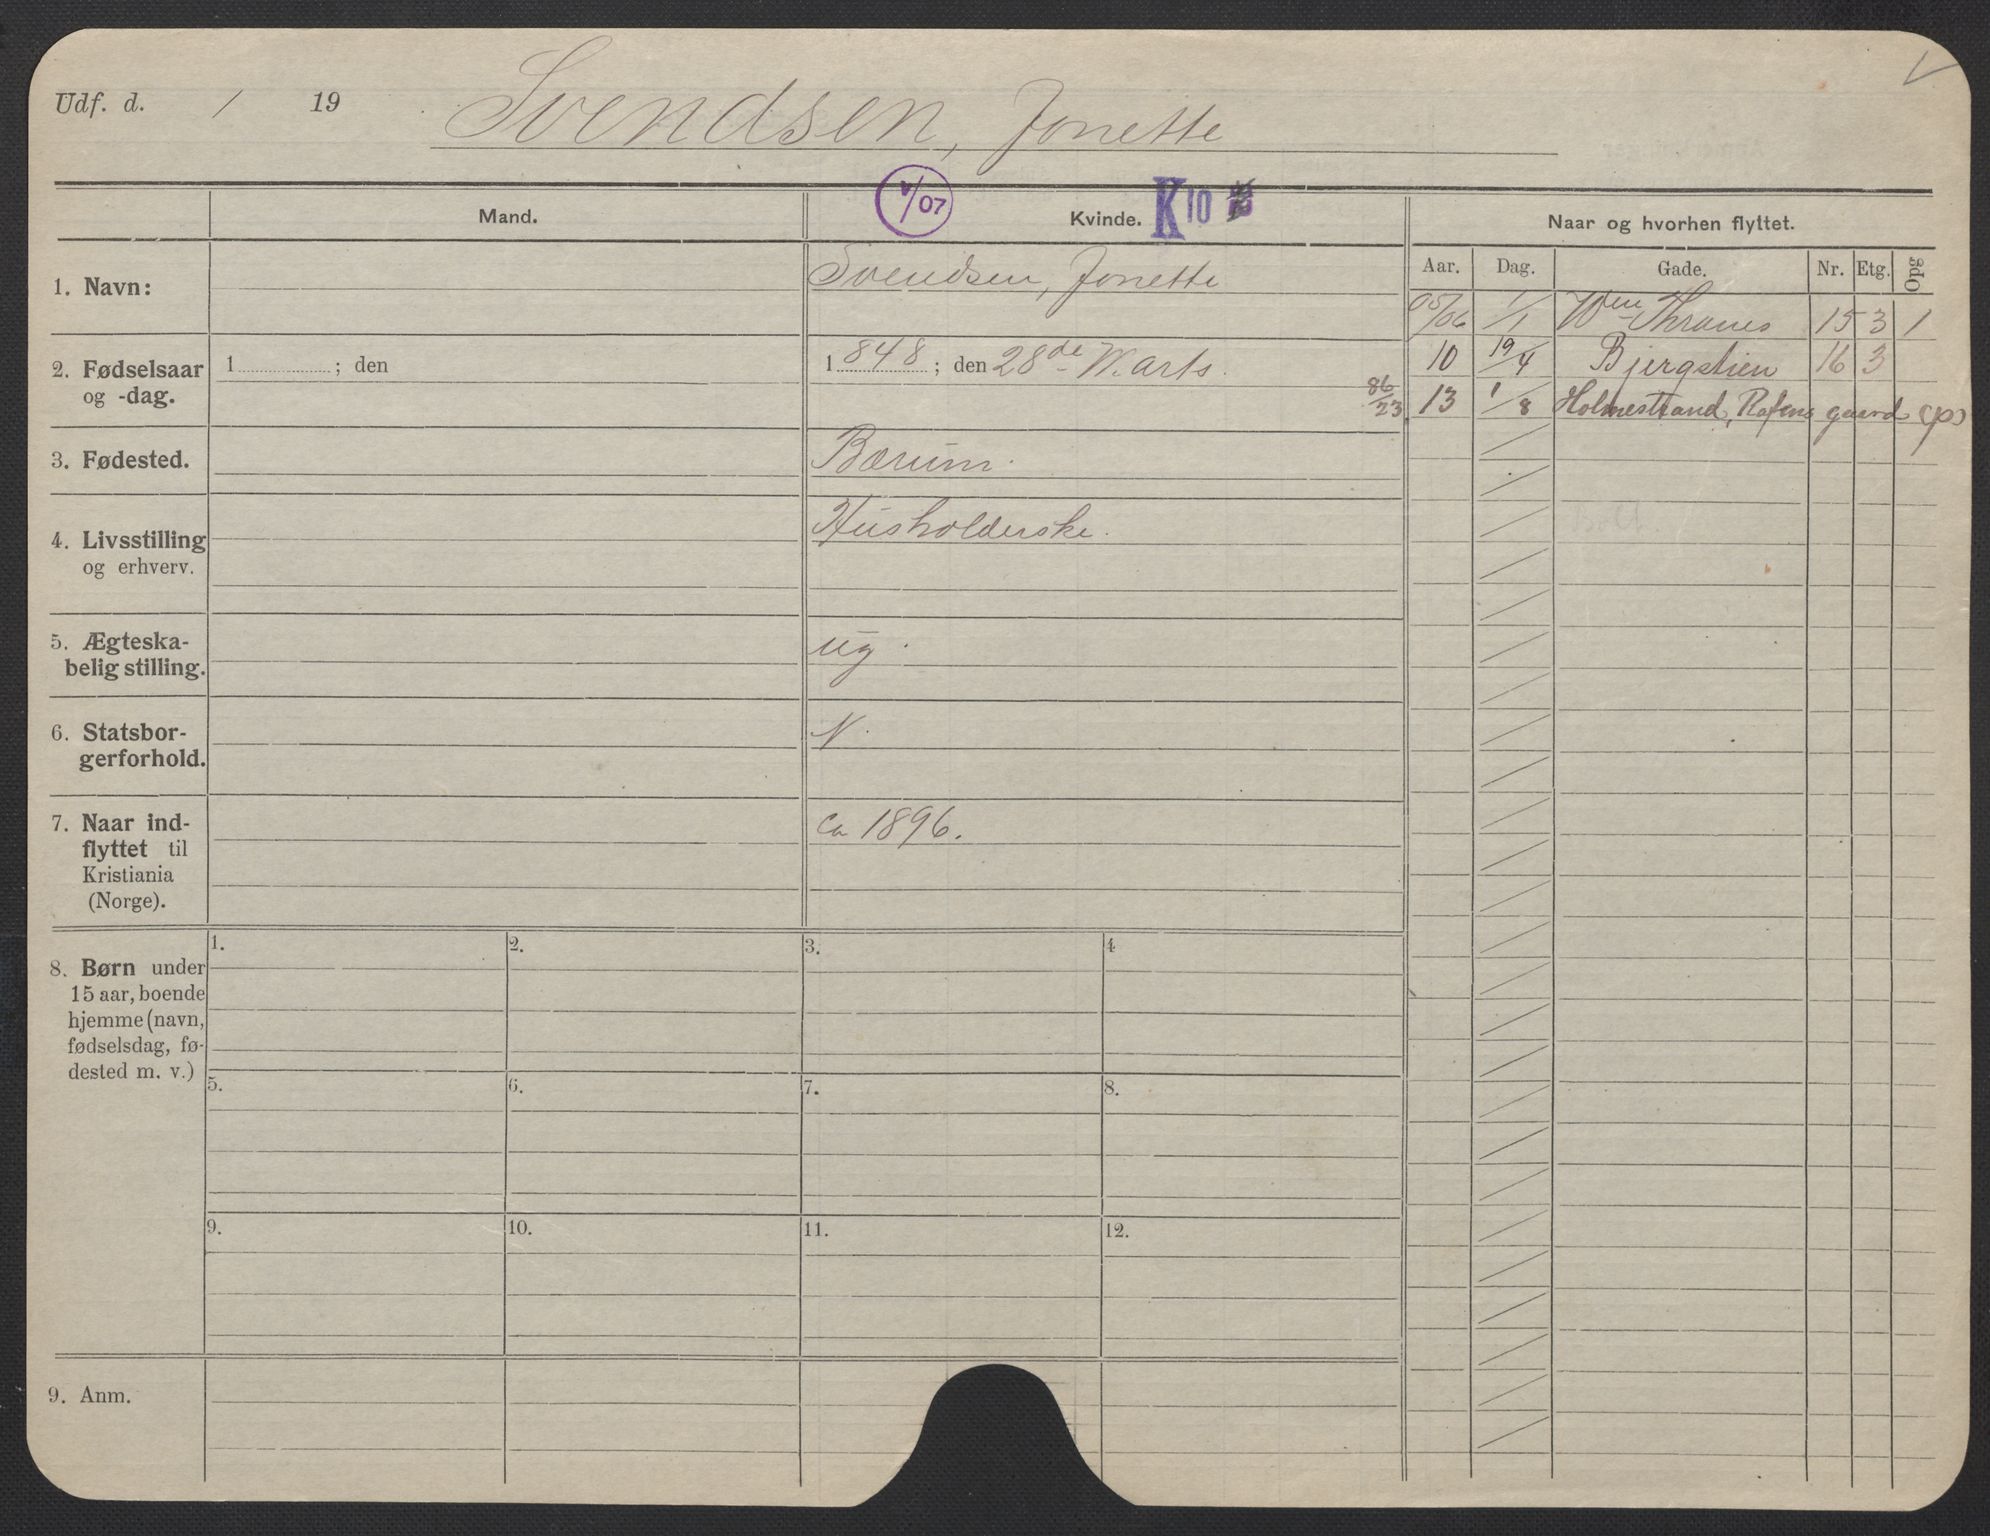 Udf. d. / 19 Svendsen, Jonette
Mand.
V/07
Kvinde. K 10
Naar og hvorhen flyttet.
Aar. Dag. Gade. Nr. Etg. Opg
1. Navn:
Svendsen, Jonette
05/06 1/1 Wm Thranes 15 3 1
2. Fødselsaar
og -dag.
1 ; den
1848; den 28de Marts.
10 19/4 Bjergstien 16 3
86/23
13 1/8 Holmestrand, Rafens gaard (p)
3. Fødested.
Bærum.
4. Livsstilling
og erhverv.
Husholderske.
5. Ægteska-
belig stilling.
ug.
6. Statsbor-
gerforhold.
N.
7. Naar ind-
flyttet til
Kristiania
(Norge).
ca 1896.
8. Børn under
15 aar, boende
hjemme (navn,
fødselsdag, fø-
dested m. v.)
1. 2. 3. 4
5. 6. 7. 8.
9. 10. 11. 12.
9. Anm.